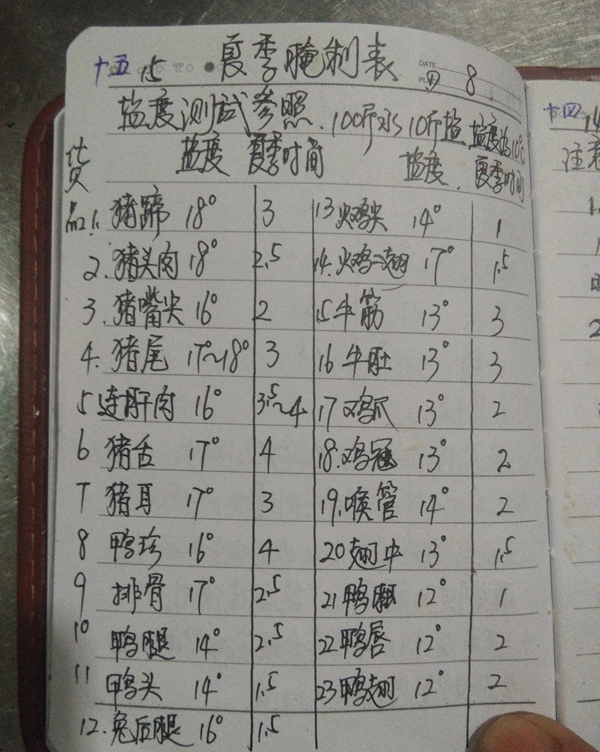 十五 15 夏季腌制表 DATE 四 8
盐度测试参照.100斤水10斤盐,盐度达10℃
货品 盐度 夏季时间 盐度. 夏季时间
1.猪蹄 18° 3 13火鸡尖 14° 1
2.猪头肉 18° 2.5 14.火鸡翅 17° 1.5
3.猪嘴尖 16° 2 15牛筋 13° 3
4.猪尾 17~18° 3 16牛肚 13° 3
5连肝肉 16° 3.5~4 17鸡爪 13° 2
6 猪舌 17° 4 18.鸡冠 13° 2
7 猪耳 17° 3 19.喉管 14° 2
8 鸭珍 16° 4 20翅中 13° 1.5
9 排骨 17° 2.5 21鸭 12° 1
10 鸭腿 14° 2.5 22鸭唇 12° 2
11 鸭头 14° 1.5 23鸭翅 12° 2
12.兔后腿 16° 1.5
十四 14
注意
1.
2